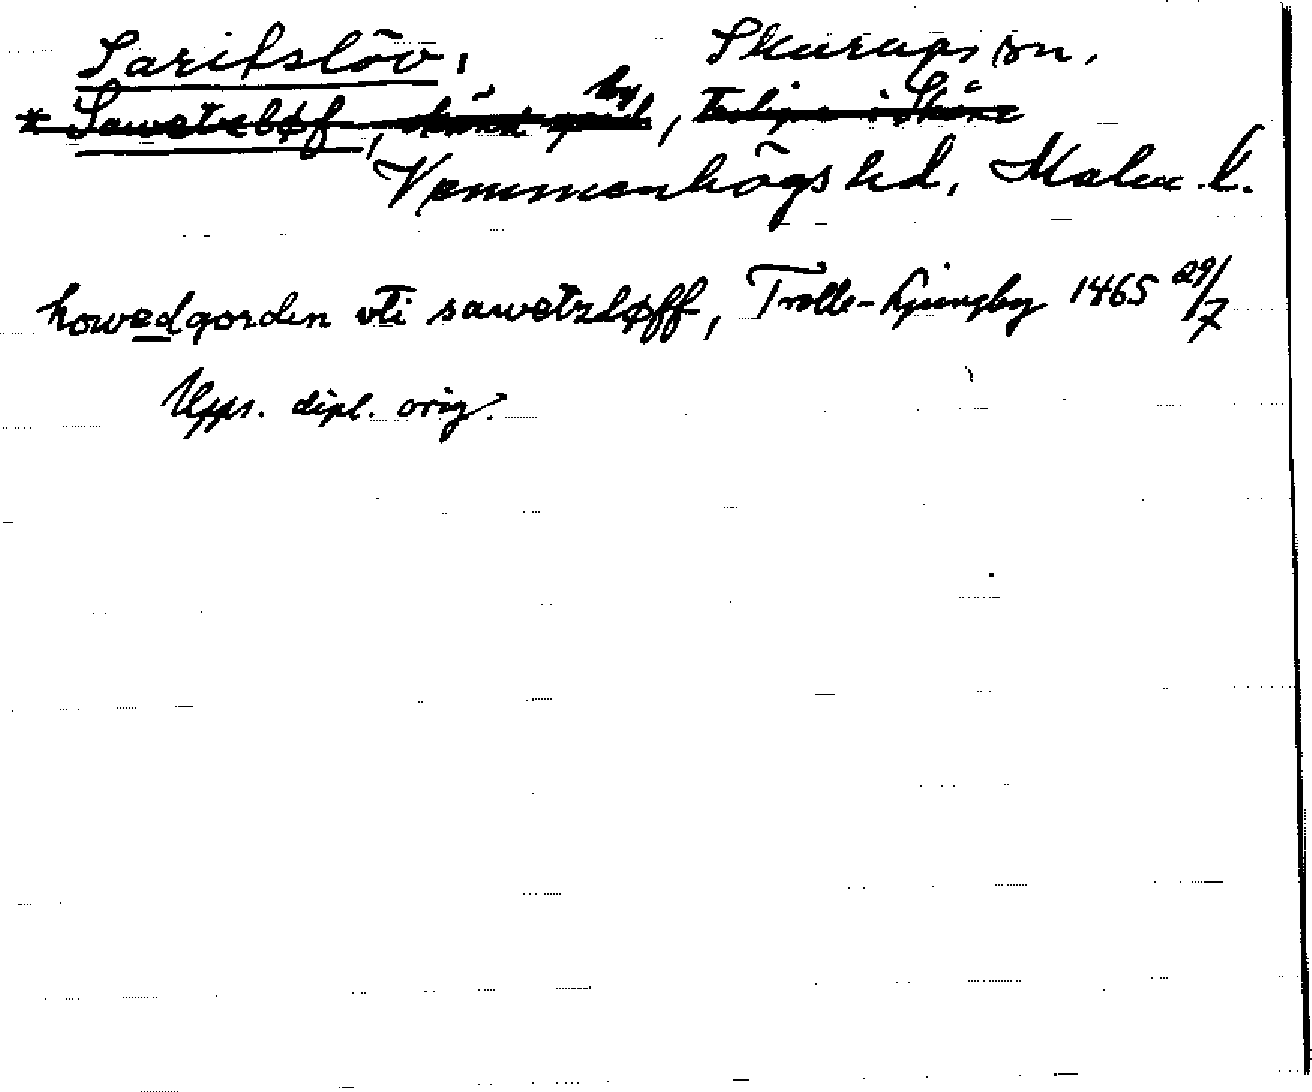 Saritslöv, Skurups sn,
* Sawetzløf, by,
Vemmenhögs hd, Malm. l.
howedgorden vti sawetzløff, Trolle-Ljungby 1465 29/7
Upps. dipl. orig.